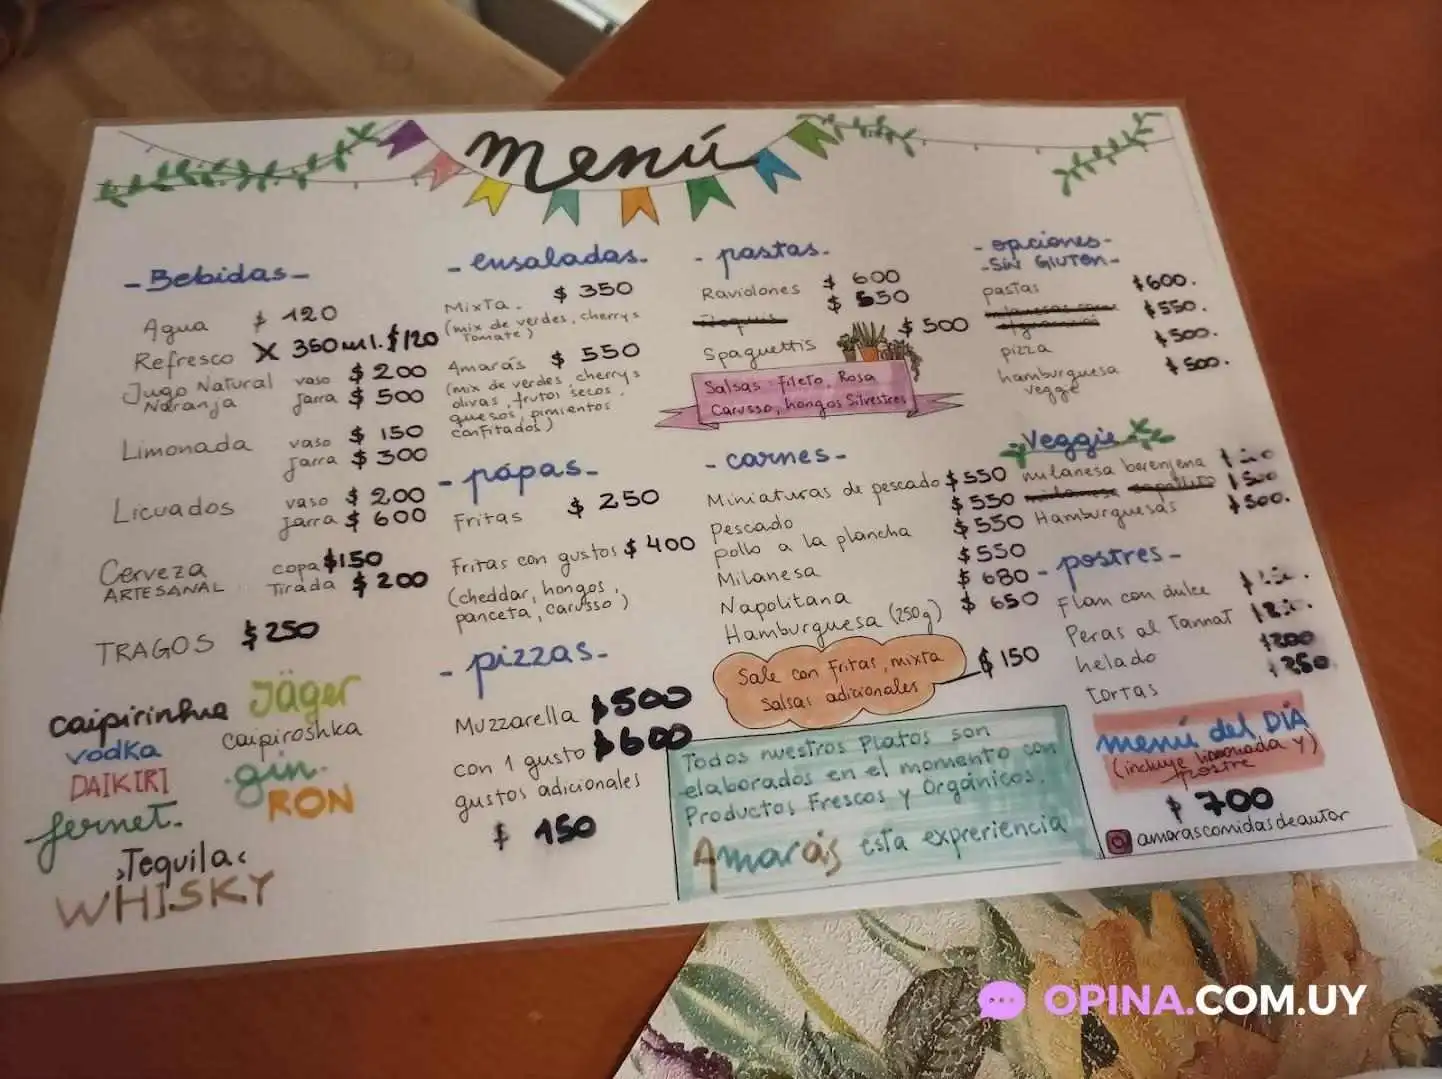 menú
- Bebidas -
Agua $ 120
Refresco X 350 ml. $120
Jugo Natural vaso $ 200
Naranja Jarra $ 500
Limonada vaso $ 150
Jarra $ 300
Licuados vaso $ 200
Jarra $ 600
Cerveza copa $150
ARTESANAL Tirada $ 200
TRAGOS $250
caipirinha Jäger
vodka caipiroshka
DAIKIRI gin
fernet. RON
Tequila
WHISKY
- ensaladas.
Mixta. $ 350
(mix de verdes, cherrys
Tomate)
Amarás $ 550
(mix de verdes, cherrys
olivas, frutos secos,
quesos, pimientos
confitados)
- papas -
Fritas $ 250
Fritas con gustos $ 400
(cheddar, hongos,
panceta, carusso)
- pizzas -
Muzzarella $500
con 1 gusto $600
gustos adicionales
$ 150
- pastas.
Raviolones $ 600
$ 550
Spaguettis $ 500
Salsas: Fileto, Rosa
Carusso, hongos Silvestres
- carnes -
Miniaturas de pescado $ 550
Pescado $ 550
pollo a la plancha $ 550
Milanesa $ 550
Napolitana $ 680
Hamburguesa (250g) $ 650
Sale con Fritas, mixta
Salsas adicionales $ 150
Todos nuestros Platos son
elaborados en el momento con
Productos Frescos y Orgánicos.
Amarás esta expreriencia
- opciones -
- SIN GLUTEN -
pastas $600.
$550.
pizza $500.
hamburguesa $500.
vegge
Veggie
milanesa berenjena
$500
Hamburguesas $500.
- postres -
Flan con dulce
Peras al Tannat
helado $200
tortas $250
menú del DÍA
(incluye limonada y)
postre
$ 700
amarascomidasdeautor
OPINA.COM.UY